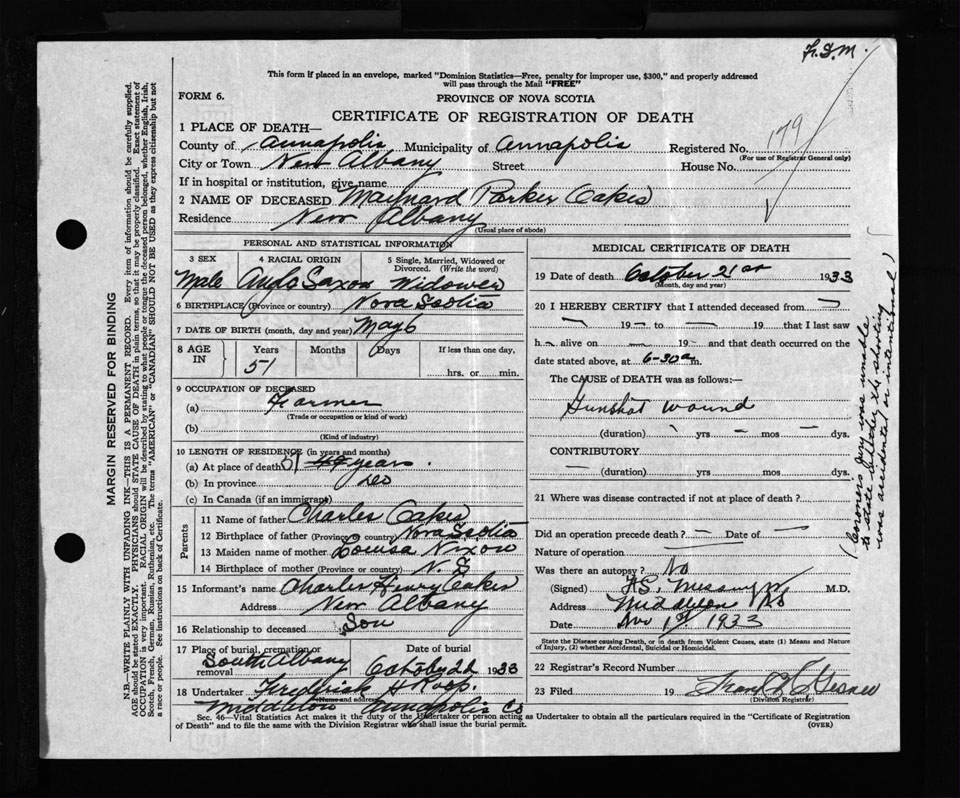 F.S.M.
This form if placed in an envelope, marked "Dominion Statistics—Free, penalty for improper use, $300," and properly addressed
will pass through the Mail "FREE"
FORM 6.
PROVINCE OF NOVA SCOTIA
CERTIFICATE OF REGISTRATION OF DEATH
1 PLACE OF DEATH—
County of Annapolis Municipality of Annapolis Registered No. 179
(For use of Registrar General only)
City or Town New Albany Street House No.
If in hospital or institution, give name
2 NAME OF DECEASED Maynard Parker Oakes
Residence New Albany
(Usual place of abode)
PERSONAL AND STATISTICAL INFORMATION
3 SEX 4 RACIAL ORIGIN 5 Single, Married, Widowed or
Divorced. (Write the word)
Male Anglo Saxon Widower
6 BIRTHPLACE (Province or country) Nova Scotia
7 DATE OF BIRTH (month, day and year) May 6
8 AGE IN Years Months Days If less than one day,
51 hrs. or min.
9 OCCUPATION OF DECEASED
(a) Farmer
(Trade or occupation or kind of work)
(b)
(Kind of industry)
10 LENGTH OF RESIDENCE (in years and months)
(a) At place of death 51 years
(b) In province Do
(c) In Canada (if an immigrant)
Parents
11 Name of father Charles Oakes
12 Birthplace of father (Province or country) Nova Scotia
13 Maiden name of mother Louisa Nixon
14 Birthplace of mother (Province or country) N. S
15 Informant's name Charles Henry Oakes
Address New Albany
16 Relationship to deceased Son
17 Place of burial, cremation or Date of burial
removal South Albany October 22 1933
18 Undertaker Fredrick H Roop.
(Name and address)
Middleton Annapolis Co
MEDICAL CERTIFICATE OF DEATH
19 Date of death October 21st 1933
(Month, day and year)
20 I HEREBY CERTIFY that I attended deceased from —
— 19 — to — 19 that I last saw
h— alive on — 19— and that death occurred on the
date stated above, at 6-30 a m.
The CAUSE of DEATH was as follows:—
Gunshot wound
(duration) — yrs — mos — dys.
CONTRIBUTORY
— (duration) yrs. mos. dys.
21 Where was disease contracted if not at place of death ?
Did an operation precede death ? — Date of —
Nature of operation
Was there an autopsy ? No
(Signed) M.D.
Address Middleton NS
Date Nov 1st 1933
State the Disease causing Death, or in death from Violent Causes, state (1) Means and Nature
of Injury, (2) whether Accidental, Suicidal or Homicidal.
22 Registrar's Record Number
23 Filed 19
(Division Registrar)
Sec. 46—Vital Statistics Act makes it the duty of the Undertaker or person acting as Undertaker to obtain all the particulars required in the "Certificate of Registration
of Death" and to file the same with the Division Registrar who shall issue the burial permit. (OVER)
(Coroners jury was unable
to state whether the shooting
was accidental or intentional)
MARGIN RESERVED FOR BINDING
N.B.—WRITE PLAINLY WITH UNFADING INK—THIS IS A PERMANENT RECORD. Every item of information should be carefully supplied.
AGE should be stated EXACTLY. PHYSICIANS should STATE CAUSE OF DEATH in plain terms, so that it may be properly classified. Exact statement of
OCCUPATION is very important. RACIAL ORIGIN will be described by stating to what people or tongue the deceased person belonged, whether English, Irish,
Scotch, French, German, Russian, Ruthenian, etc. The terms "AMERICAN" or "CANADIAN" SHOULD NOT BE USED as they express citizenship but not
a race or people. See instructions on back of Certificate.